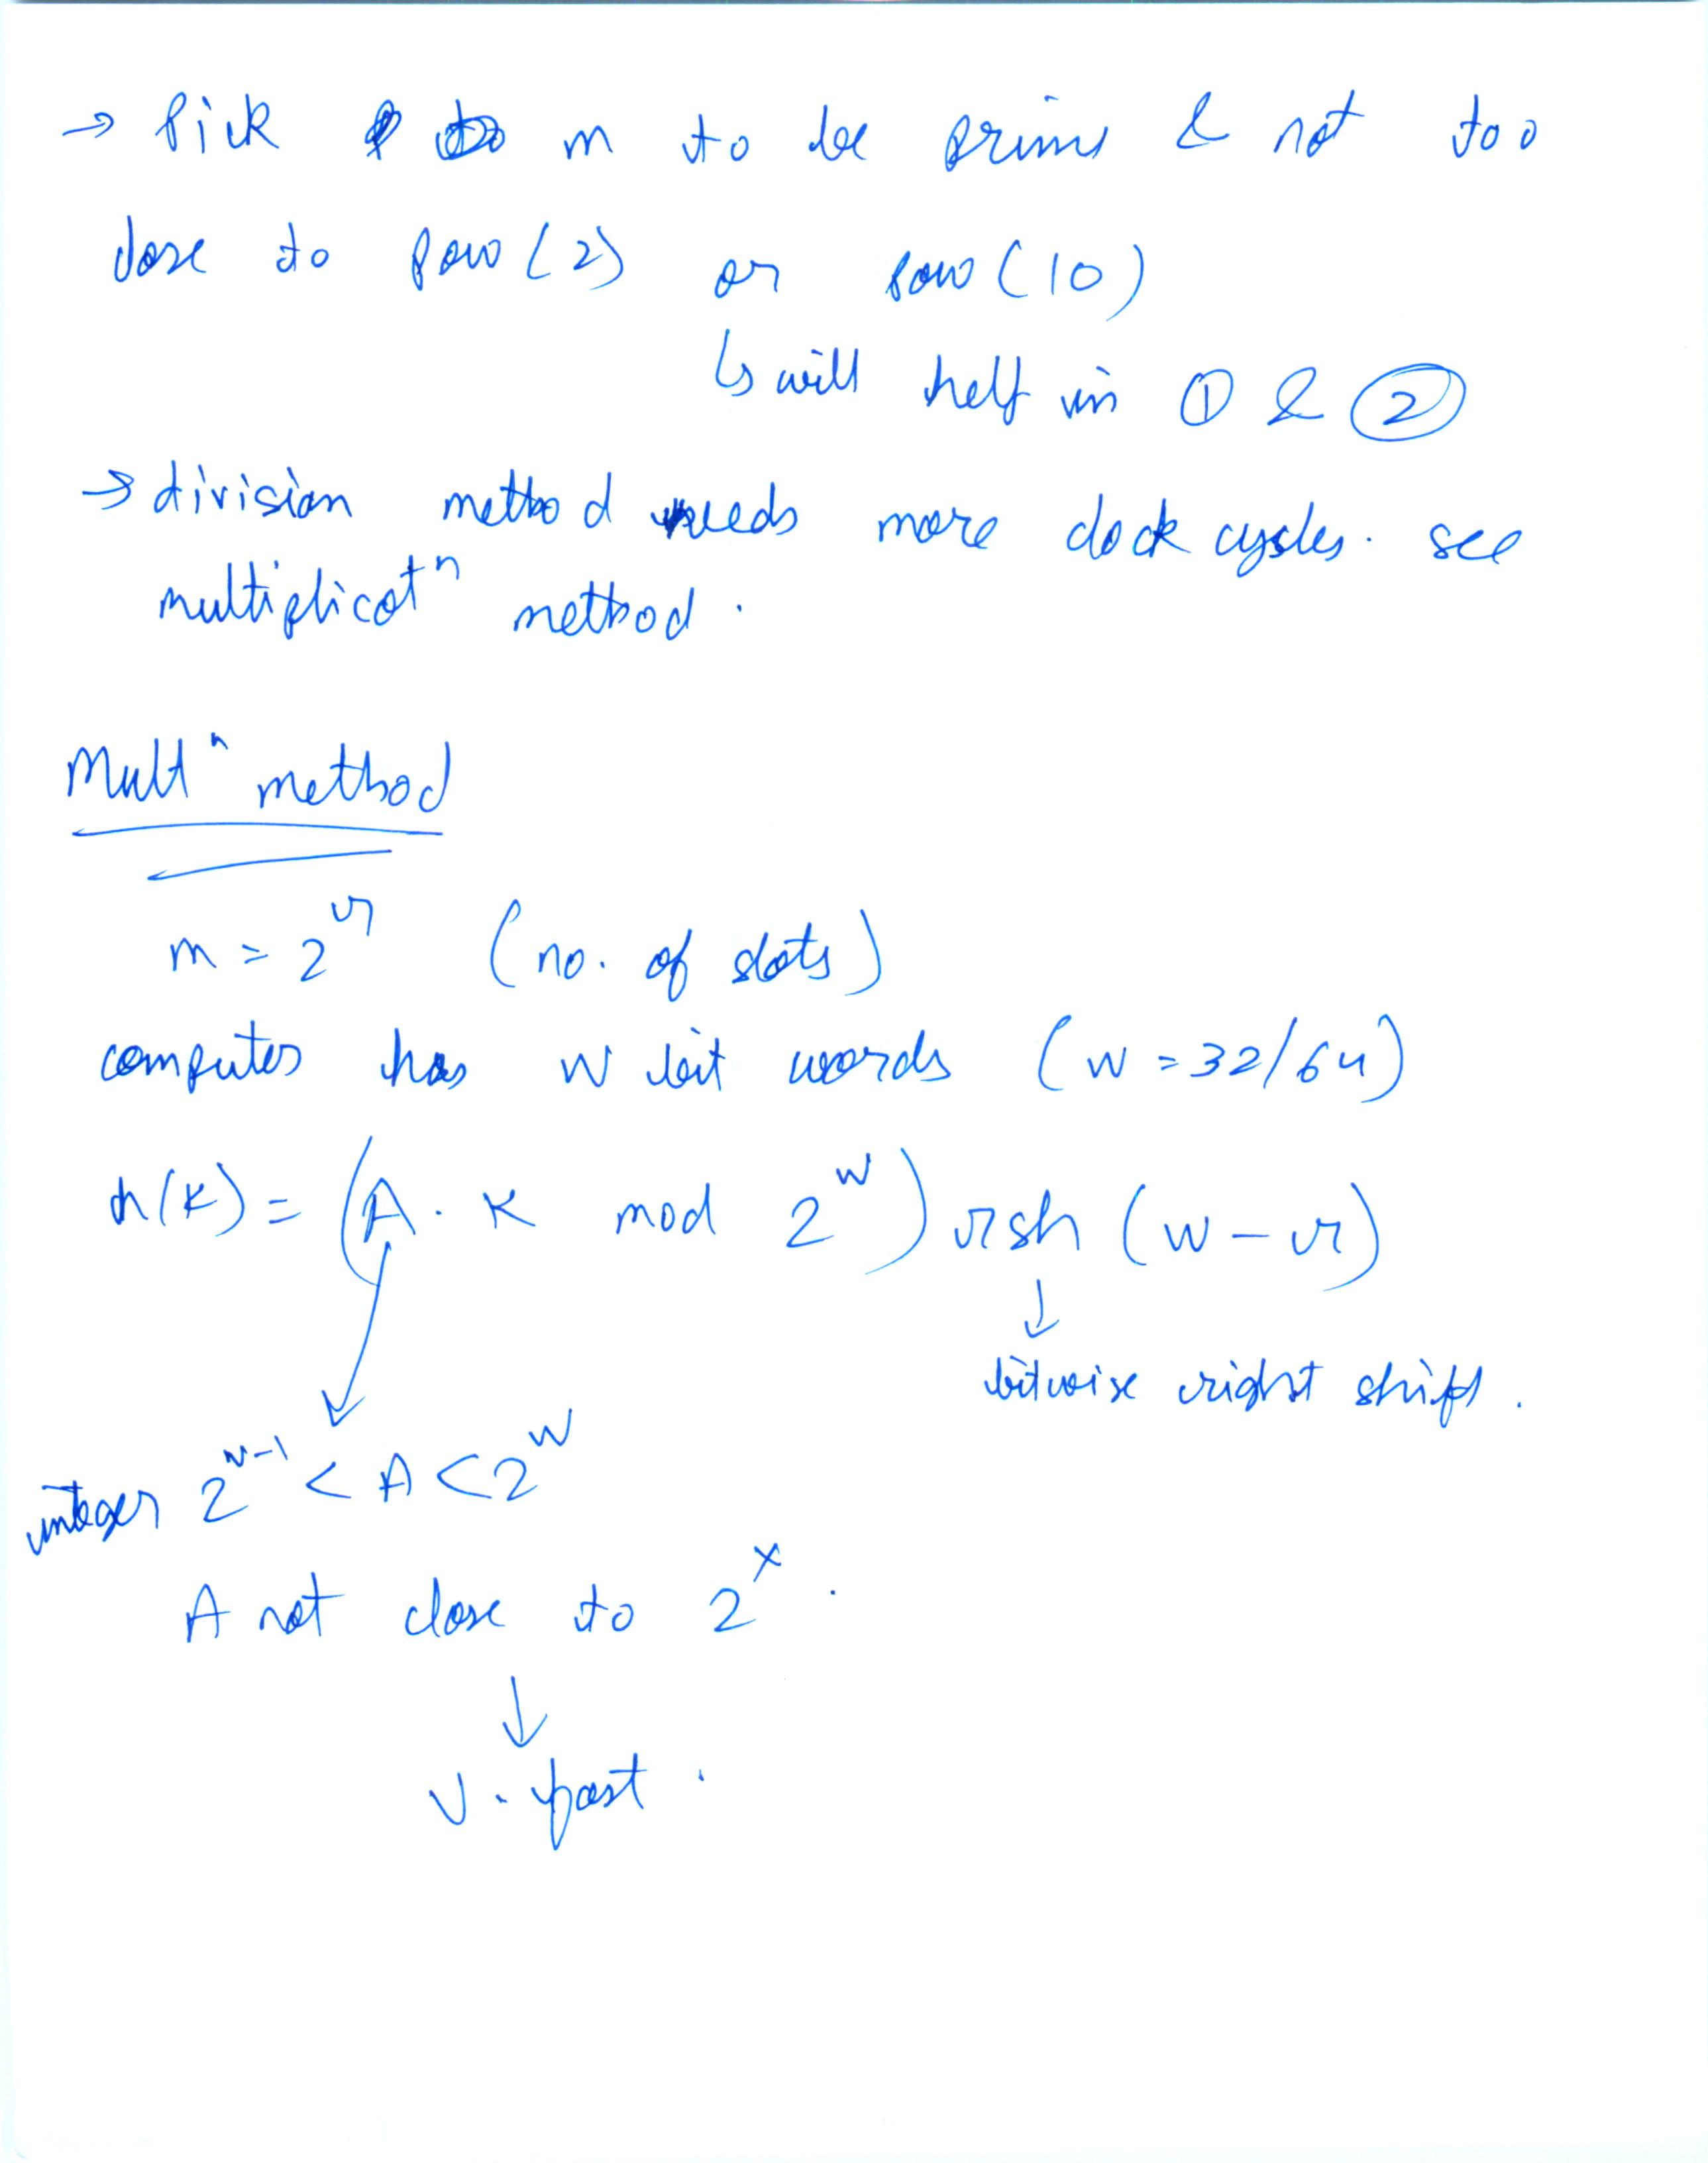 → Pick m to be prime & not too
close to pow(2) or pow(10)
↳ will help in ① & ②
→ division method needs more clock cycles. see
multiplicatⁿ method.
Multⁿ method
m = 2^r (no. of slots)
computer has w bit words (w = 32/64)
h(k) = (A . K mod 2^w) rsh (w - r)
↓
bitwise right shift.
integer 2^(w-1) < A < 2^w
A not close to 2^x .
↓
v. fast .